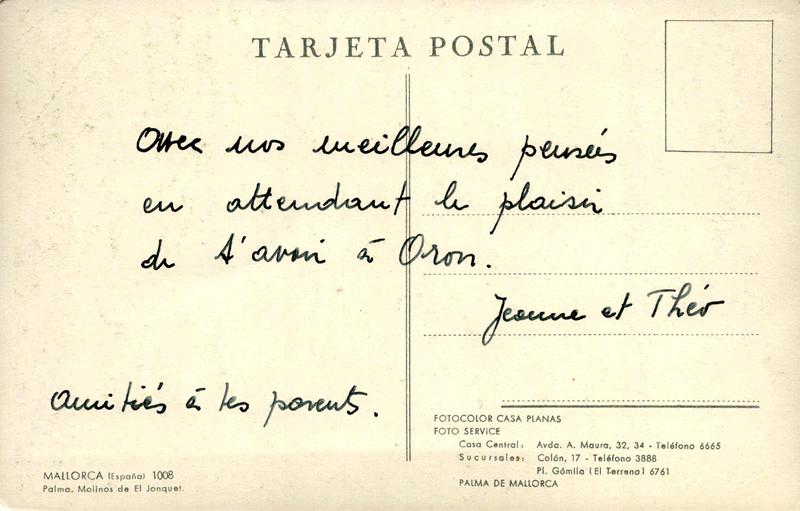 TARJETA POSTAL
Avec nos meilleures pensées
en attendant le plaisir
de t'avoir à Oron.
Jeanne et Théo
Amitiés à tes parents.
FOTOCOLOR CASA PLANAS
FOTO SERVICE
Casa Central: Avda. A. Maura, 32, 34 - Teléfono 6665
Sucursales: Colón, 17 - Teléfono 3888
Pl. Gómila (El Terreno) 6761
PALMA DE MALLORCA
MALLORCA (España) 1008
Palma. Molinos de El Jonquet.